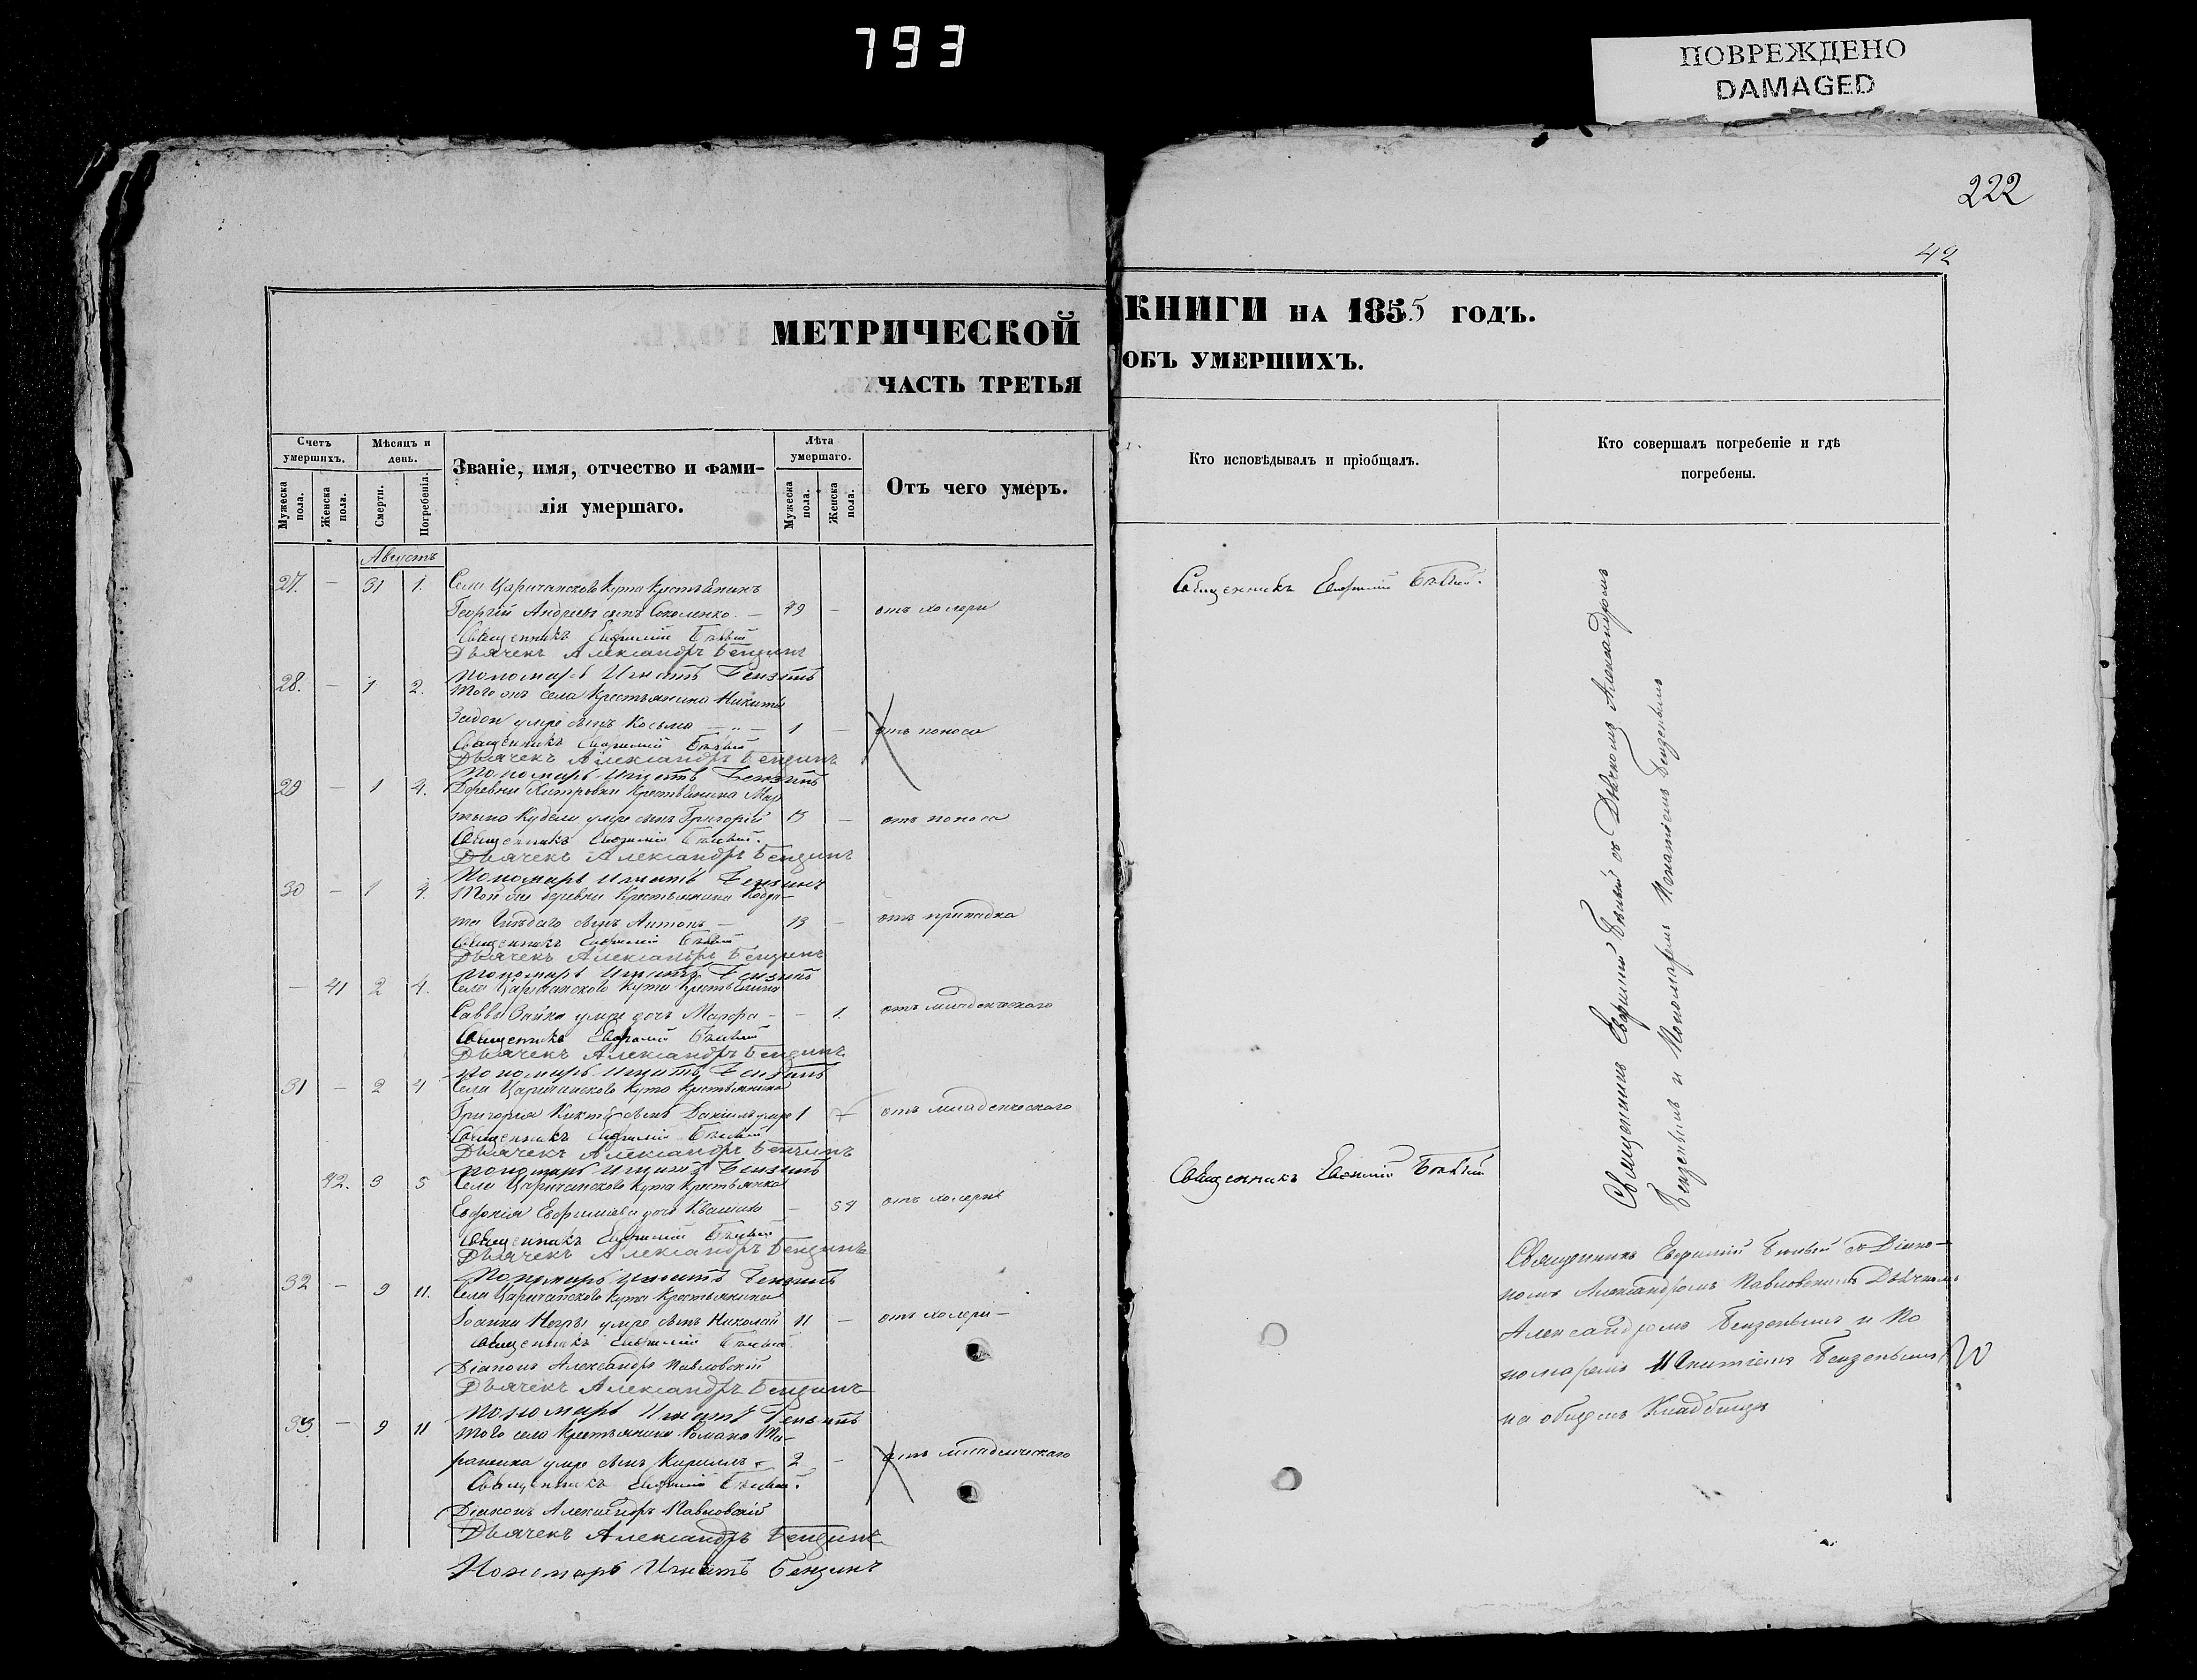 793
ПОВРЕЖДЕНО
DAMAGED
222
42
МЕТРИЧЕСКОЙ
ЧАСТЬ ТРЕТЬЯ
Счетъ умершихъ.
Мужеска пола.
Женска пола.
Мѣсяцъ и день.
Смерти.
Погребенія.
Званіе, имя, отчество и фами-
лія умершаго.
Лѣта умершаго.
Мужеска пола.
Женска пола.
Отъ чего умеръ.
Августъ
27. — 31 1. Села Царичанского Кута Крестьянинъ
Георгій Андреевъ сынъ Соколенко — 49 — отъ холери
Священникъ Евфимій Бѣлый
Дьячекъ Александръ Бендинъ
Пономарь Игнатъ Бензинъ
28. — 1 2. Того же села Крестьянина Никиты
умре сынъ Косьма — 1 — отъ поноса
Священникъ Евфимій Бѣлый
Дьячекъ Александръ Бендинъ
Пономарь Игнатъ Бензинъ
29 — 1 4. Деревни Хитровки Крестьянина Мар
тына Кубели умре сынъ Григорій — отъ поноса
Священникъ Евфимій Бѣлый.
Дьячекъ Александръ Бендинъ
Пономарь Игнатъ Бензинъ
30 — 1 4. Той же деревни Крестьянина Кодра-
та сынъ Антонъ — 13 — отъ припадка
Священникъ Евфимій Бѣлый
Дьячекъ Александръ Бендинъ
Пономарь Игнатъ Бензинъ
— 41 2 4. Села Царичанского Кута Крестьянина
Саввы Зайка умре дочь Мавра — — 1. отъ младенческаго
Священникъ Евфимій Бѣлый
Дьячекъ Александръ Бендинъ
Пономарь Игнатъ Бензинъ
31 — 2 4 Села Царичанского Кута Крестьянина
Григорія сынъ Даніилъ умре 1 отъ младенческаго
Священникъ Евфимій Бѣлый
Дьячекъ Александръ Бендинъ
Пономарь Игнатъ Бензинъ
42. 3 5 Села Царичанского Кута Крестьянка
Евфимова дочь — 54 отъ холеры
Священникъ Евфимій Бѣлый
Дьячекъ Александръ Бендинъ
Пономарь Игнатъ Бензинъ
32 — 9 11. Села Царичанского Кута Крестьянина
Іоанна Негры умре сынъ Николай 11 — отъ холери —
Священникъ Евфимій Бѣлый
Діаконъ Александръ Павловскій
Дьячекъ Александръ Бендинъ
Пономарь Игнатъ Бензинъ
33. — 9 11 Того села Крестьянина Романа Та-
раненка умре сынъ Кириллъ 2 — отъ младенческаго
Священникъ Евфимій Бѣлый.
Діаконъ Александръ Павловскій
Дьячекъ Александръ Бендинъ
Пономарь Игнатъ Бендинъ
КНИГИ НА 1855 ГОДЪ.
ОБЪ УМЕРШИХЪ.
Кто исповѣдывалъ и пріобщалъ.
Кто совершалъ погребеніе и гдѣ
погребены.
Священникъ Евфимій Бѣлый.
Священникъ Евфимій Бѣлый
Священникъ Евфимій Бѣлый съ Дьячкомъ Александромъ
Бензенымъ и Пономаремъ Игнатіемъ Бензенымъ
Священникъ Евфимій Бѣлый съ Діако-
номъ Александромъ Павловскимъ Дьячкомъ
Александромъ Бензенымъ и По
номаремъ Игнатіемъ Бензенымъ
на общемъ Кладбищѣ